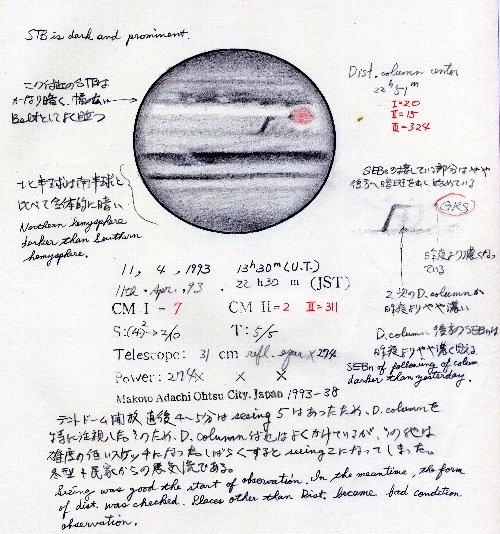 STB is dark and prominent
この付近のSTBは
かなり暗く、幅広い
Beltとしてよく目立つ
Dist. column center
22h 51m
I=20
II=15
III=324
北半球は南半球と
比べて全体的に暗い
Northern hemysphere
darker than Southern
hemysphere.
SEBnに接している部分はやや
後方へ暗斑を出し始めている
GRS
昨夜より濃くなっ
ている
2次のD.columnが
昨夜よりやや濃い
D.column 後方のSEBnは
昨夜よりやや濃く見える
SEBn of following of column
darker than yesterday.
11, 4, 1993 13h30m(U.T.)
11th. Apr., 93. 22h30m (JST)
CM I - 7 CM II=2 III=311
S:(4)→2/10 T: 5/5
Telescope: 31 cm refl. × 274
Power: 274x x x
Makoto Adachi Ohtsu City. Japan 1993-38
テントドーム開放直後4~5分はseeing 5はあったため、D.columnを
特に注視した。そのため、D.columnは よくかけているが、その他は
確度の低いスケッチになった。しばらくするとseeing 2になってしまった。
冬型+民家からの蒸気流である。
Seeing was good the start of observation. In the meantime, the form
of dist. was checked. Places other than Dist. became bad condition
observation.